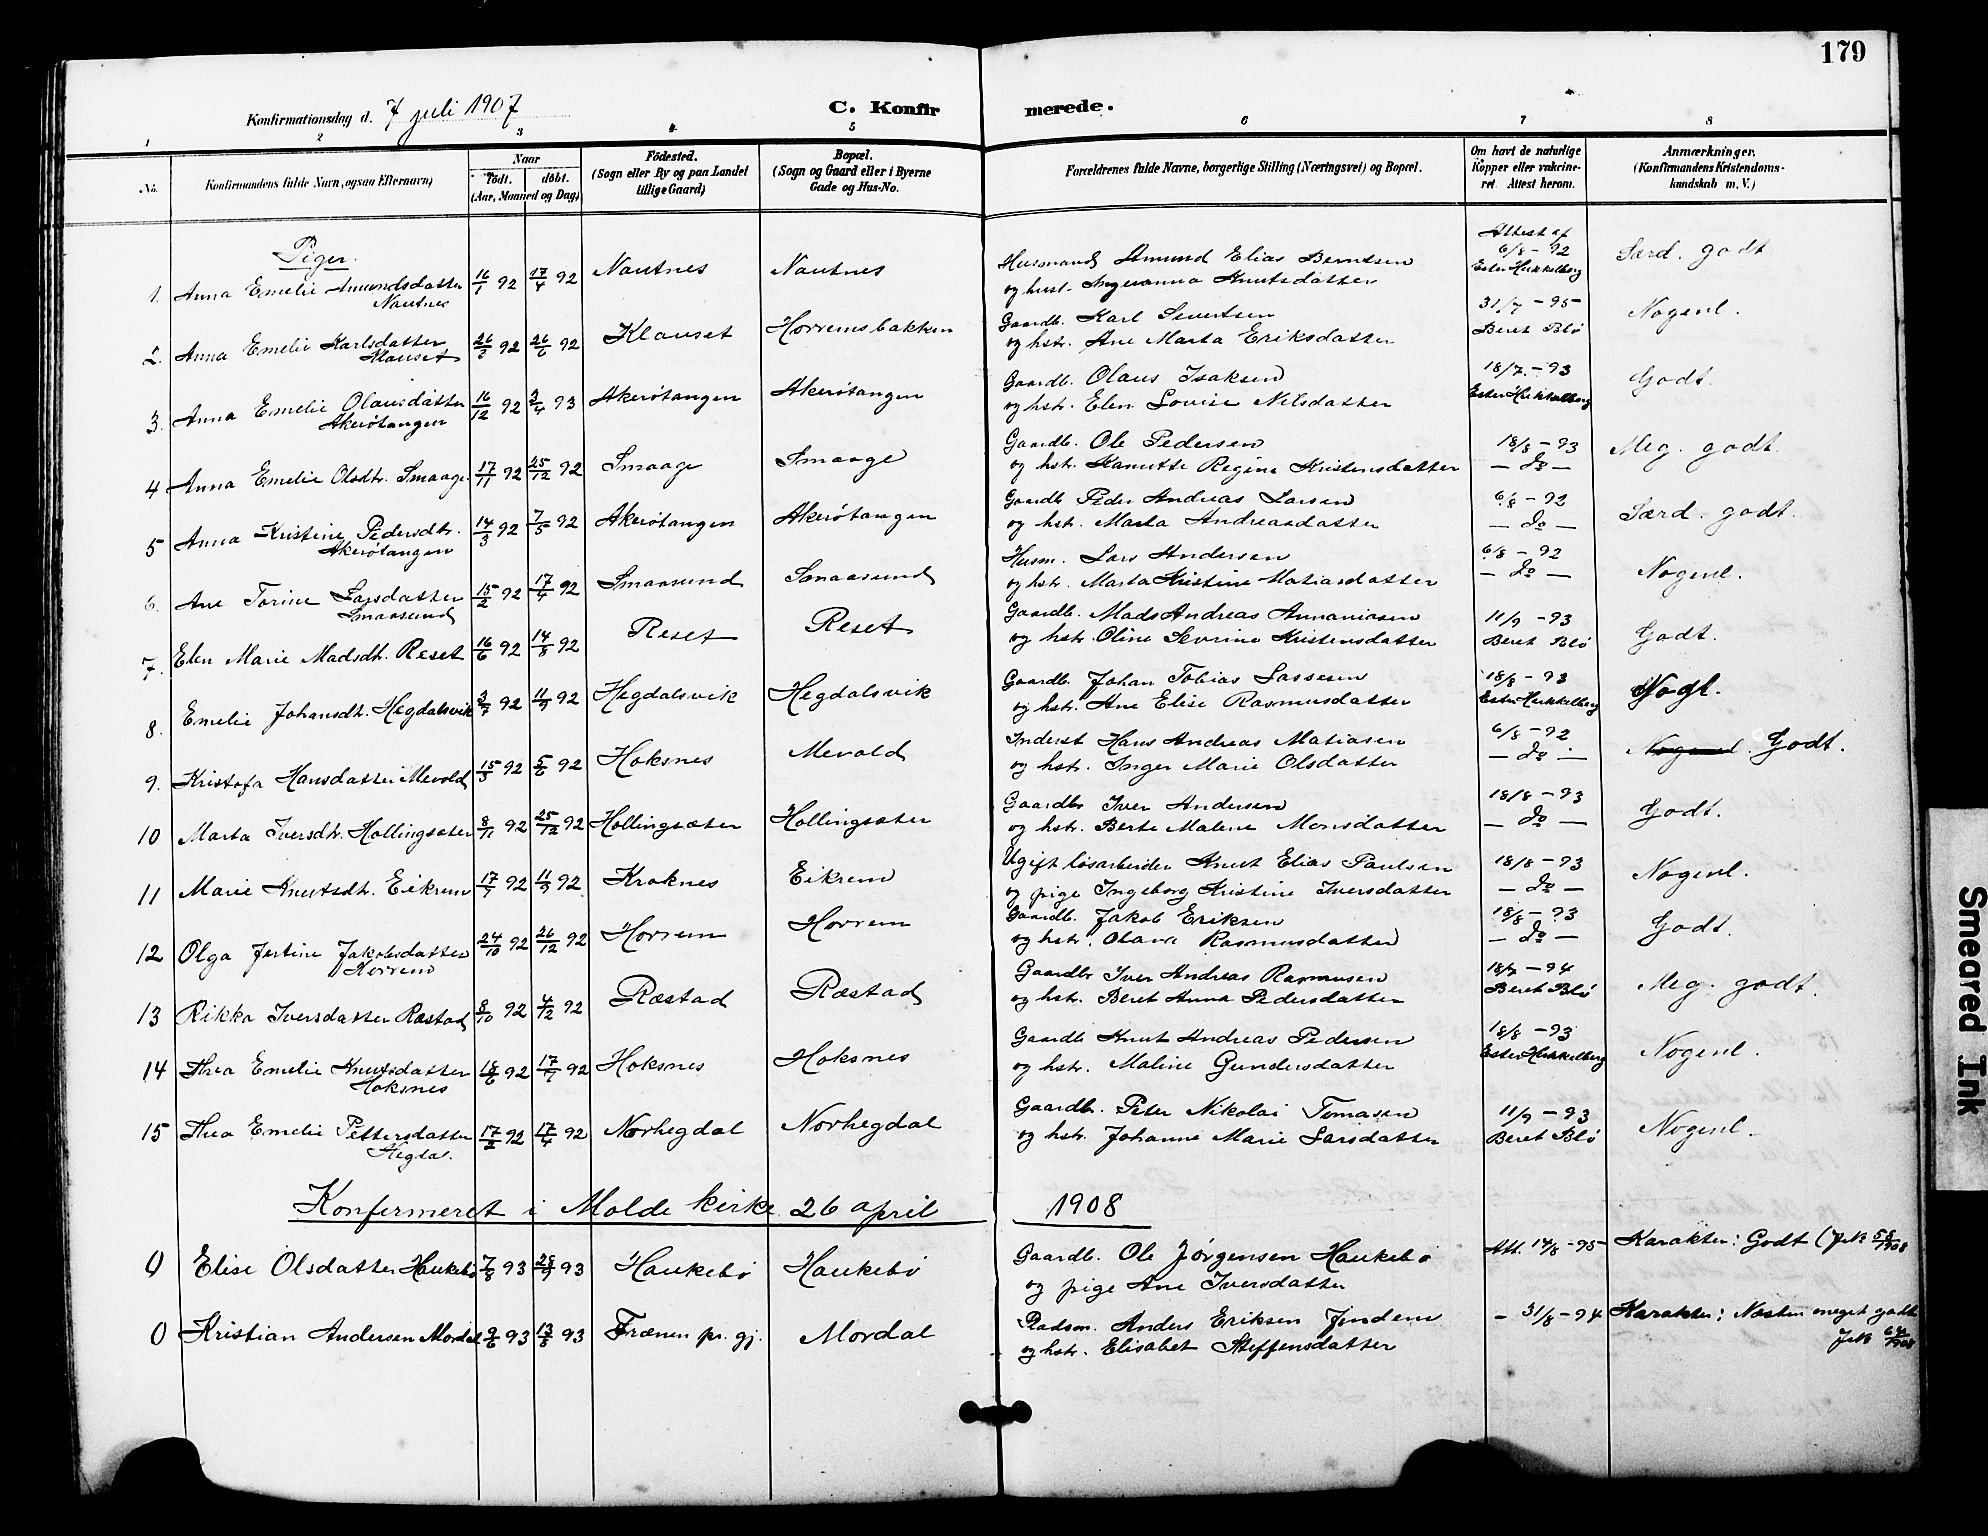 179
Konfirmationsdag d. 7 juli 1907
C. Konfirmerede.
1 2 3 4 5 6 7 8
No.
Konfirmandens fulde Navn, ogsaa Efternavn)
Naar
født. døbt.
(Aar, Maaned og Dag)
Födested.
(Sogn eller By og paa Landet
tillige Gaard)
Bopæl.
(Sogn og Gaard eller i Byerne
Gade og Hus-No.
Forældrenes fulde Navne, borgerlige Stilling (Næringsvei) og Bopæl.
Om havt de naturlige
Kopper eller vakcine-
ret. Attest herom.
Anmærkninger.
(Konfirmandens Kristendoms-
kundskab m. V.)
Piger.
1. Anna Emelie Amundsdatter Nautnes 16/1 92 17/4 92 Nautnes Nautnes Husmand Amund Elias Berntsen
og hust. Ingeranna Knutsdatter Attest af 6/8 - 92 Ester Hekkelberg Særd. godt
2. Anna Emelie Karlsdatter Klauset 92 26/6 92 Klauset Horremsbakken Gaardb. Karl Sivertsen
og hstr. Ane Marta Eriksdatter 31/7 - 95 Beret Blø Nogenl.
3. Anna Emelie Olausdatter Akerötangen 16/12 92 3/4 93 Akerötangen Akerötangen Gaardb. Olaus Isaksen
og hstr. Elen Lovise Nilsdatter 18/7 - 93 Ester Hekkelberg Godt.
4 Anna Emelie Olsdtr. Smaage. 17/11 92 25/12 92 Smaage Smaage Gaardb. Ole Pedersen
og hstr. Kanutte Regine Kristensdatter 18/8 - 93 — do — Meg. godt.
5 Anna Kristine Pedersdtr. Akerötangen 14/3 92 7/5 92 Akerötangen Akerötangen Gaardb Peder Andreas Larsen
og hstr. Marta Andreasdatter 6/8 - 92 — do — Særd. godt.
6. Ane Torine Larsdatter Smaasund 15/2 92 17/4 92 Smaasund Smaasund Husm. Lars Andersen
og hstr. Marta Kristine Matiasdatter 6/8 - 92 — do — Nogenl.
7. Elen Marie Madsdtr. Reset 16/6 92 14/8 92 Reset Reset Gaardb. Mads Andreas Annaniasen
og hstr. Oline Sevrine Kristensdatter 11/9 - 93 Beret Blø Godt.
8. Emelie Johansdtr. Hegdalsvik 3/7 92 11/9 92 Hegdalsvik Hegdalsvik Gaardb. Johan Tobias Lassesen
og hstr. Ane Elise Rasmusdatter 18/8 - 93 Ester Hekkelberg Nogl.
9. Kristofa Hansdatter Mevold 15/3 92 5/6 92 Hoksnes Mevold Inderst Hans Andreas Matiasen
og hstr. Inger Marie Olsdatter 6/8 - 92 — do — Nogenl. Godt.
10 Marta Iversdtr. Hollingsæter 8/11 92 25/12 92 Hollingsæter Hollingsæter Gaardbr Iver Andersen
og hstr. Berte Malene Monsdatter 18/8 - 93 — do — Godt.
11 Marie Knutsdtr. Eikrem 17/7 92 11/9 92 Kroknes Eikrem Ugift løsarbeider Knut Elias Paulsen
og pige Ingeborg Kristine Iversdatter 18/8 - 93 — do — Nogenl.
12 Olga Jertine Jakobsdatter Horrem 24/10 92 26/12 92 Horrem Horrem Gaardb. Jakob Eriksen
og hstr. Olava Rasmusdatter 18/8 - 93 — do — Godt.
13 Rikka Iversdatter Ræstad 8/10 92 4/12 92 Ræstad Ræstad Gaardbr Iver Andreas Rasmusen
og hstr. Beret Anna Pedersdatter 18/7 - 94 Beret Blø Meg. godt.
14 Thea Emelie Knutsdatter Hoksnes 18/6 92 17/7 92 Hoksnes Hoksnes Gaardb Knut Andreas Pedersen
og hstr. Maline Gundersdatter 18/8 - 93 Ester Hekkelberg Nogenl.
15 Thea Emelie Pettersdatter Hegdal. 17/2 92 17/4 92 Norhegdal Norhegdal Gaardbr. Peter Nikolai Tomasen
og hstr. Johanne Marie Larsdatter 11/9 - 93 Beret Blø Nogenl.
Konfermeret i Molde kirke 26 april 1908
0 Elise Olsdatter Haukebø 7/8 93 93 Haukebø Haukebø Gaardb. Ole Jørgensen Haukebø
og pige Ane Iversdatter Att. 14/8 - 95 Karakter: Godt (J.N. 55/1908
0 Kristian Andersen Mordal 93 13/8 93 Frænen pr. gj. Mordal Pladsm. Anders Eriksen Jendem
og hstr. Elisabet Steffensdatter - 31/8 - 94 Karakter: Næsten meget godt
J.N. 64/1908
Smeared Ink